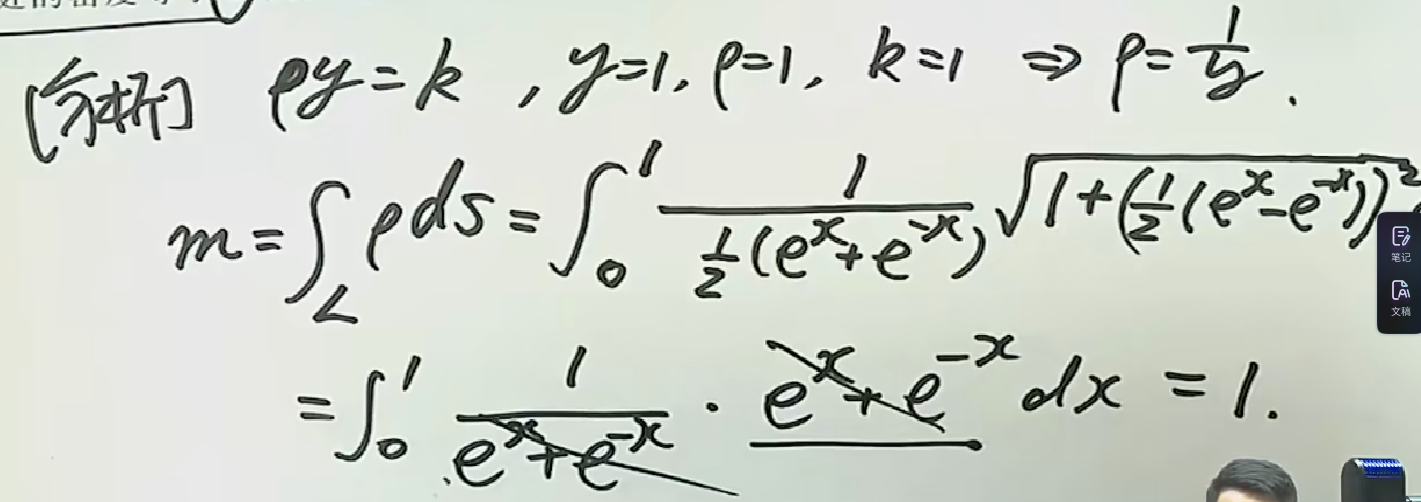 [分析] ρy=k , y=1, ρ=1, k=1 ⇒ ρ=1/y .
m=∫_L ρds=∫_0^1 1/(½(e^x+e^{-x})) √(1+(½(e^x-e^{-x}))^2)
笔记
文稿
=∫_0^1 1/(e^x+e^{-x}) · e^x+e^{-x} dx = 1.